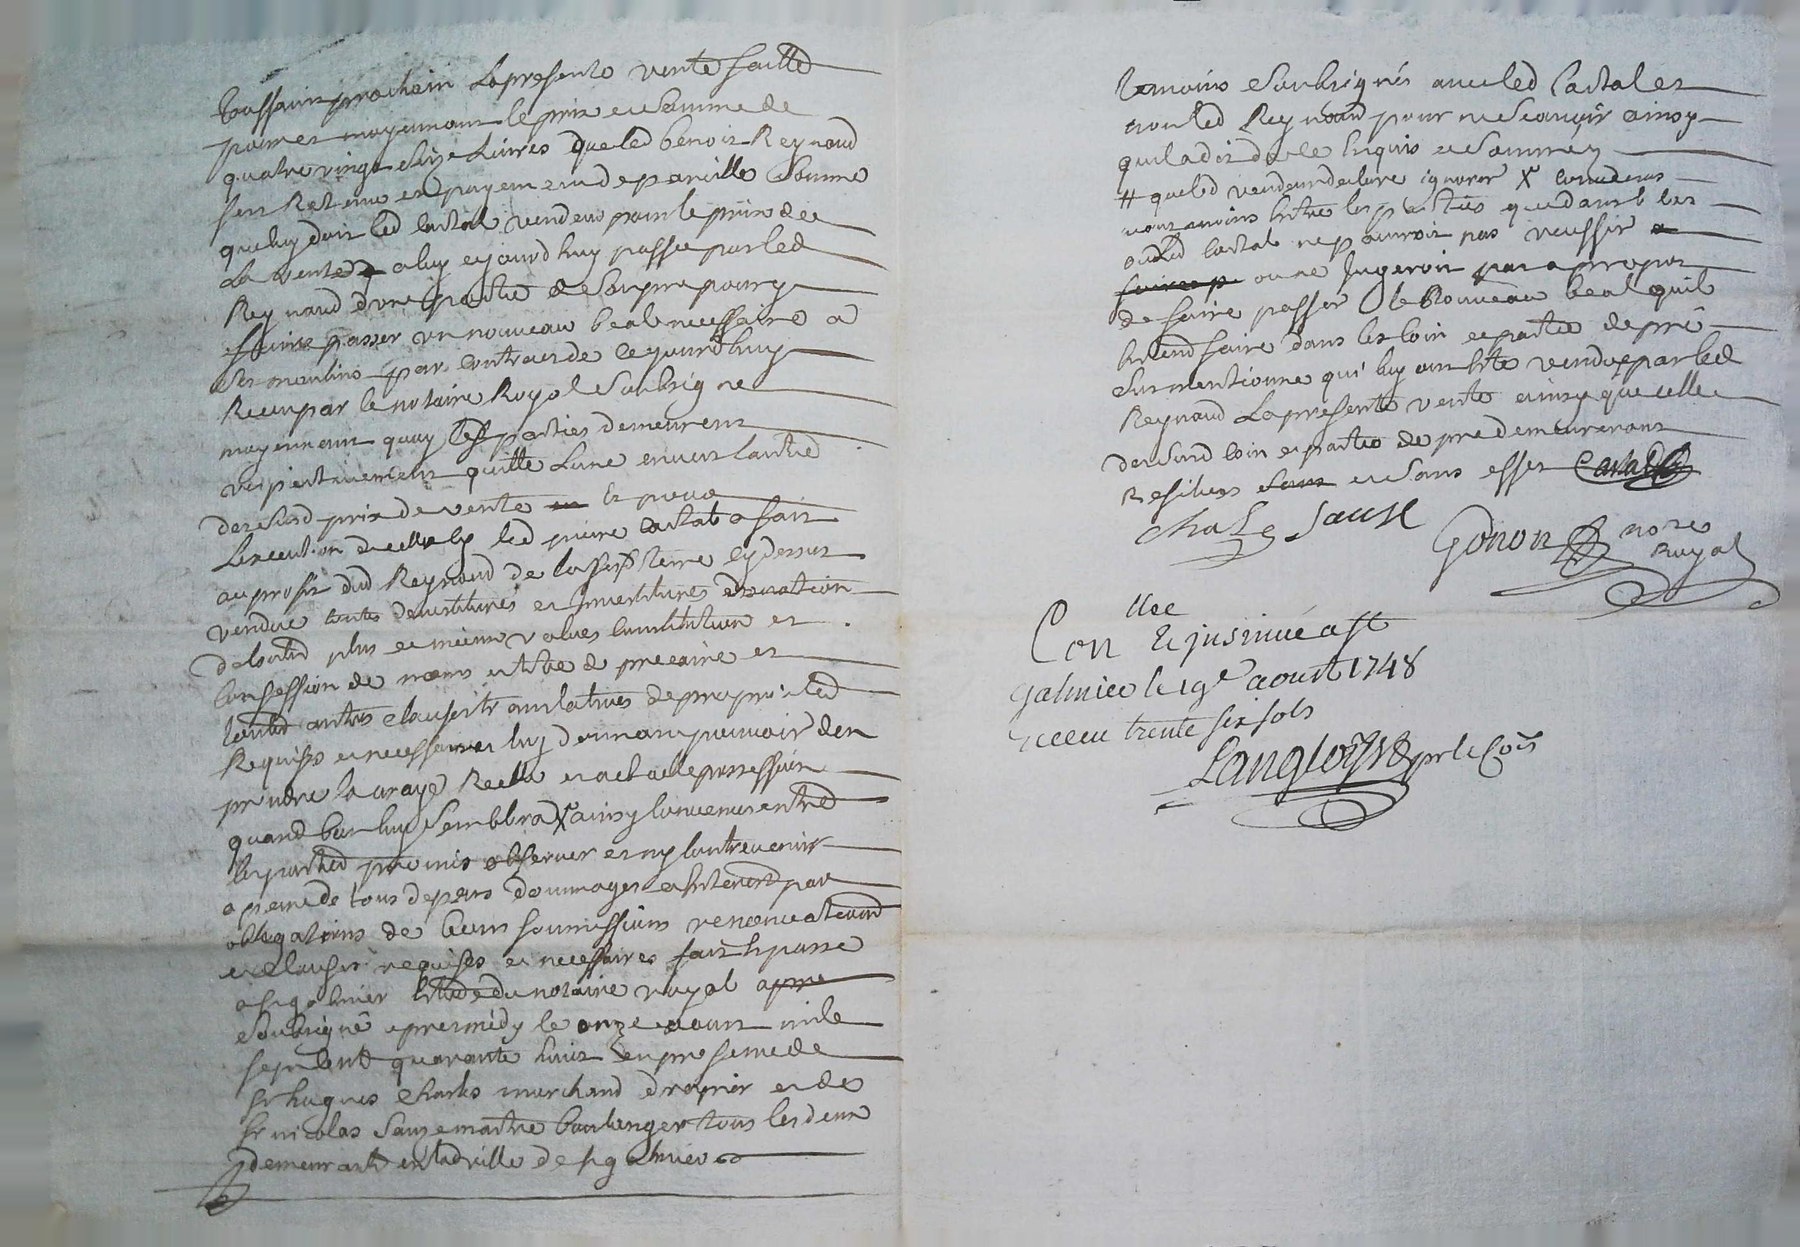 Toussaint prochain La presente vente faitte
moyennant le prix et somme de
quatre vingt seize Livres que led benoit Reynaud
sest Retenue en payement de pareille Somme
que luy doit led Cartal vendeur pour le prix de
La vente a luy ejourdhuy passée par led
Reynaud dune partie de Son pre pour y
faire passer un nouveau beal necessaire a
Ses moulins par contract de cejourdhuy
Receu par le notaire Royal Soubsigne
moyennant quoy lesd parties demeurent
respectivement quitte Lune envers Lautre
desusd prix de vente et pour
Lexecution led pierre Cartal a fait
au profit dud Reynaud de lasusd terre cy dessus
vendue toutes devestitures et Investitures donnation
de lad plus et meins values Constitution et
Confession de noms titre de precaire et
autres clauses translatives de propriete
Requises et necessaires luy donnant pouvoir den
prendre la vraye Reelle et actuelle possession
quand bon luy Semblera X ainsy Convenu entre
les parties promis observer et ny Contrevenir
a peine de tous depens dommages et Interest par
obligations de leurs soumissions renonciations
et clauses requises et necessaires fait et passé
a st galmier Etude du notaire royal
Soubsigné apres midy le onze aoust mile
sept cent quarante huit en presence de
sr hugues Charles marchand drapier et de
sr nicolas Sauze maitre boulenger tous les deux
demeurant en lad ville de st galmier
temoins Soubsignés avec led Cartal et
non led Reynaud pour ne Scavoir ainsy
quil a dit de ce Enquis et Sommey
# que led vendeur declare ignorer X
neanmoins Entre les parties que dans le cas
ou led Cartal ne pouroit pas reussir
ou ne Jugeroit pas a propos
de faire passer le Nouveau beal quil
pretend faire dans les coin et partie de pré
Surmentionne qui luy ont Eté vendu par led
Reynaud La presente vente ainsy que celle
desusd coin et partie de pre demeureront
Resiliées et Sans effet Cartal
Charle Sause
Gonon nore
Royal
Con lloe
Et insinué a st
galmier le 19e aoust 1748
receu trente six sols
Langlois pr le Cois